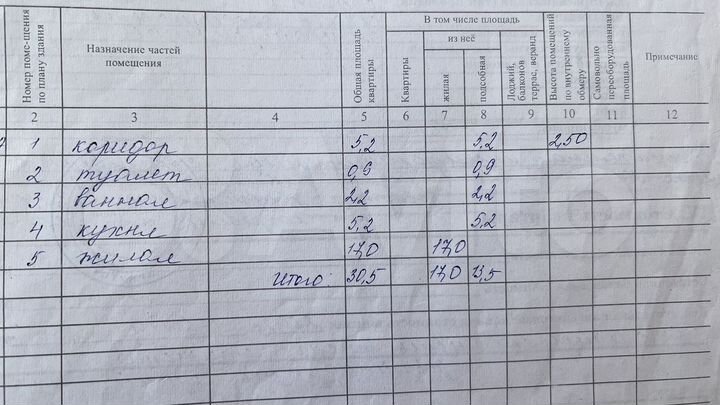 Номер поме-щения по плану здания | Назначение частей помещения | | Общая площадь квартиры | В том числе площадь | Высота помещений по внутреннему обмеру | Самовольно переоборудованная площадь | Примечание
Квартиры | из неё | Лоджий, балконов террас, веранд
жилая | подсобная
2 3 4 5 6 7 8 9 10 11 12
1 коридор 5,2 5,2 2,50
2 туалет 0,9 0,9
3 ванная 2,2 2,2
4 кухня 5,2 5,2
5 жилая 17,0 17,0
Итого 30,5 17,0 13,5